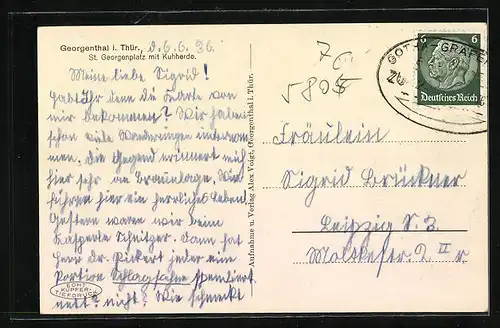 Georgenthal i. Thür., d. 6.6.36.
St. Georgenplatz mit Kuhherde.
Meine liebe Sigrid!
Habt Ihr denn die Karte von
mir bekommen? Wir haben
schon viele Wanderungen unternom-
men. Die Gegend erinnert mich
hier sehr an Braunlage. Wir
führen hier ein herrliches Leben.
Gestern waren wir beim
Kasperle Schnitzer. Dann hat
Herr Dr. Pickert jeder eine
Portion Schlagsahne spendiert.
nett? nicht? Wie schmeckt
ECHT
KUPFER-
TIEFDRUCK
Aufnahme u. Verlag Alex Voigt, Georgenthal i. Thür.
5805
GOTHA - GRÄFEN
ZUG
6 6
Deutsches Reich
Fräulein
Sigrid Brückner
Leipzig S. 3
Moltkestr. II r.